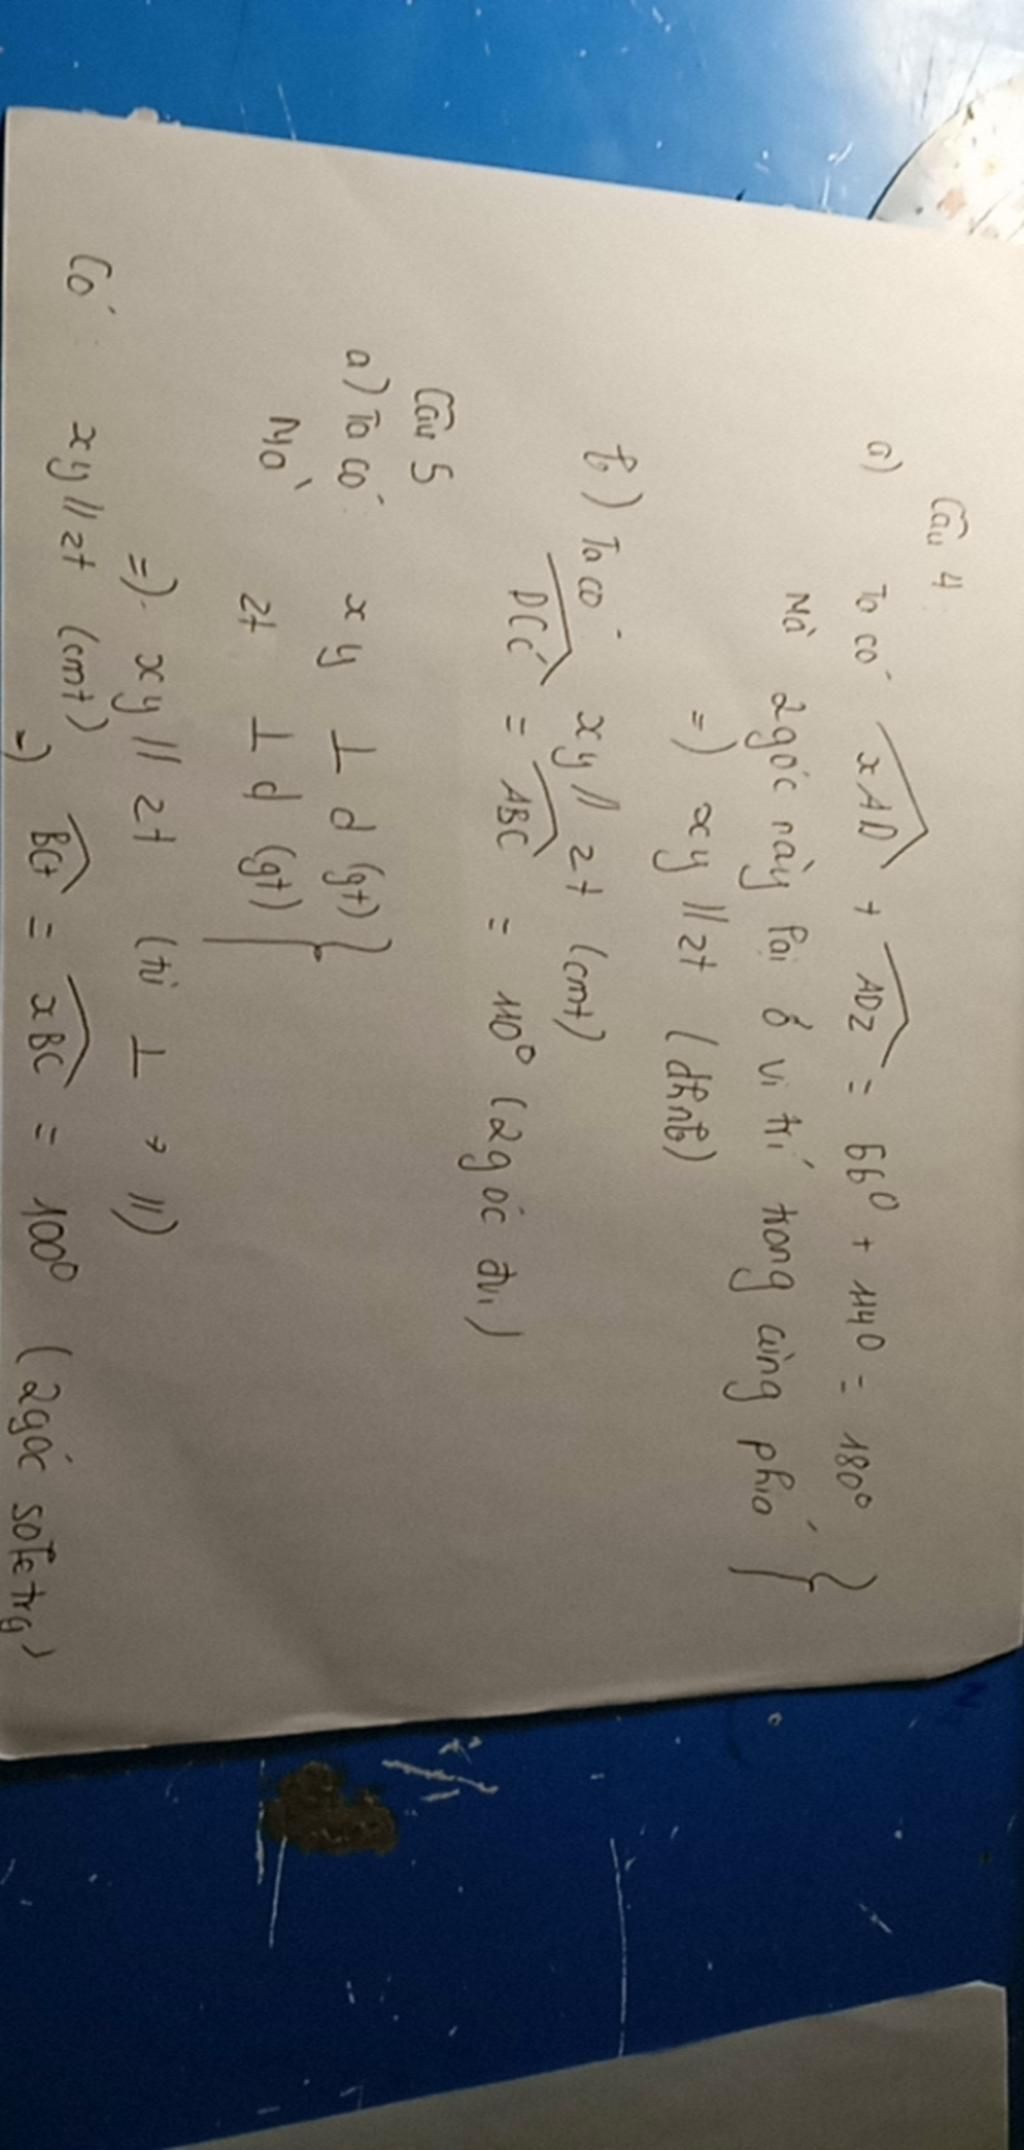 Câu 4
a) Ta có xAD + ADZ = 66⁰ + 114⁰ = 180⁰
Mà 2 góc này lại ở vị trí trong cùng phía }
=) xy // zt (dhnb)
b) Ta có xy // zt (cmt)
DCC' = ABC = 110⁰ (2 góc đvị)
Câu 5
a) Ta có xy ⊥ d (gt)
Mà zt ⊥ d (gt) }
=) xy // zt (từ ⊥ → //)
Có xy // zt (cmt)
=) BCt = xBC = 100⁰ (2 góc soletrg)